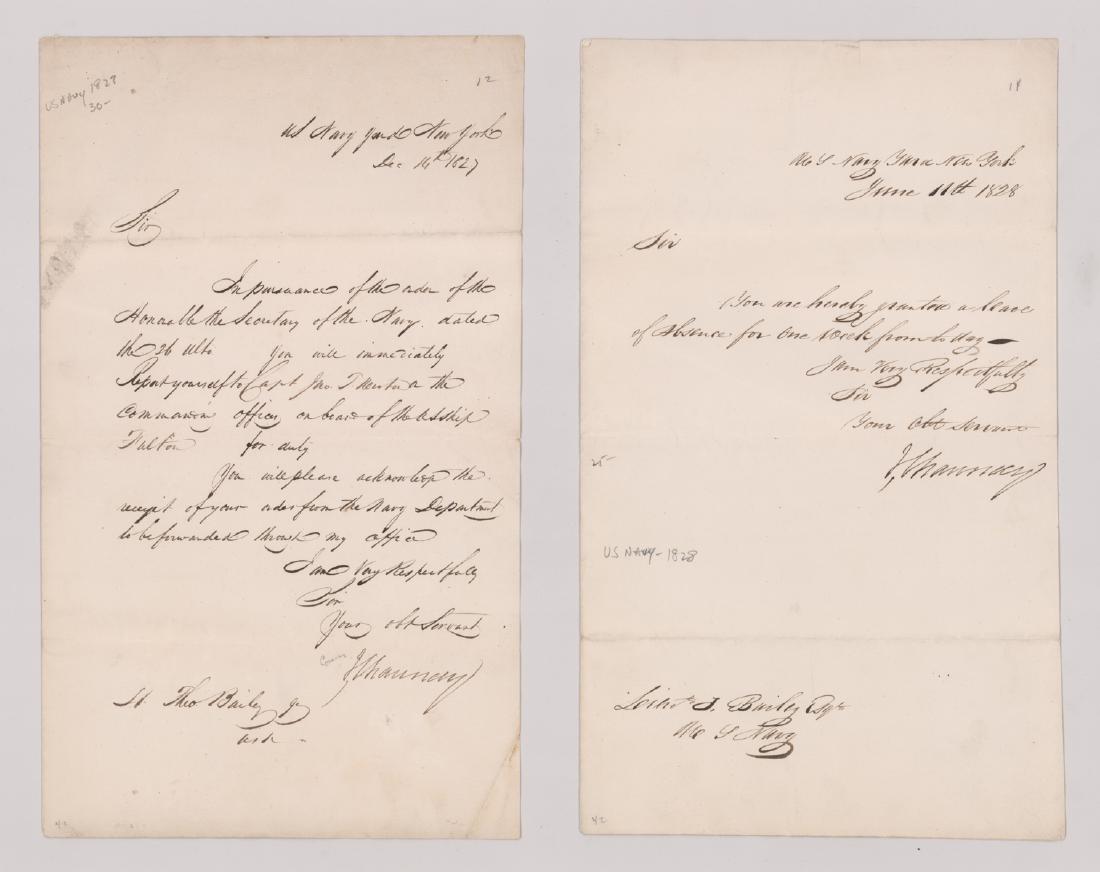 US NAVY 1828
30-
12
US Navy Yard New York
Dec 14th 1827
Sir
In pursuance of the order of the
Honorable the Secretary of the Navy dated
the 26 Ulto You will immediately
Report yourself to Capt Jno. T Newton or the
Commanding officer on board of the US Ship
Fulton for duty
You will please acknowledge the
receipt of your order from the Navy Department
to be forwarded through my office
I am Very Respectfully
Sir
Your obt Servant
Comm
I Chauncey
Lt. Theo Bailey
42
US Navy Yard New York
June 11th 1828
Sir
You are hereby granted a leave
of absence for one week from to day
I am Very Respectfully
Sir
Your Obt Servant
25-
I Chauncey
US NAVY - 1828
Lieut T. Bailey Esqr
U S Navy
42